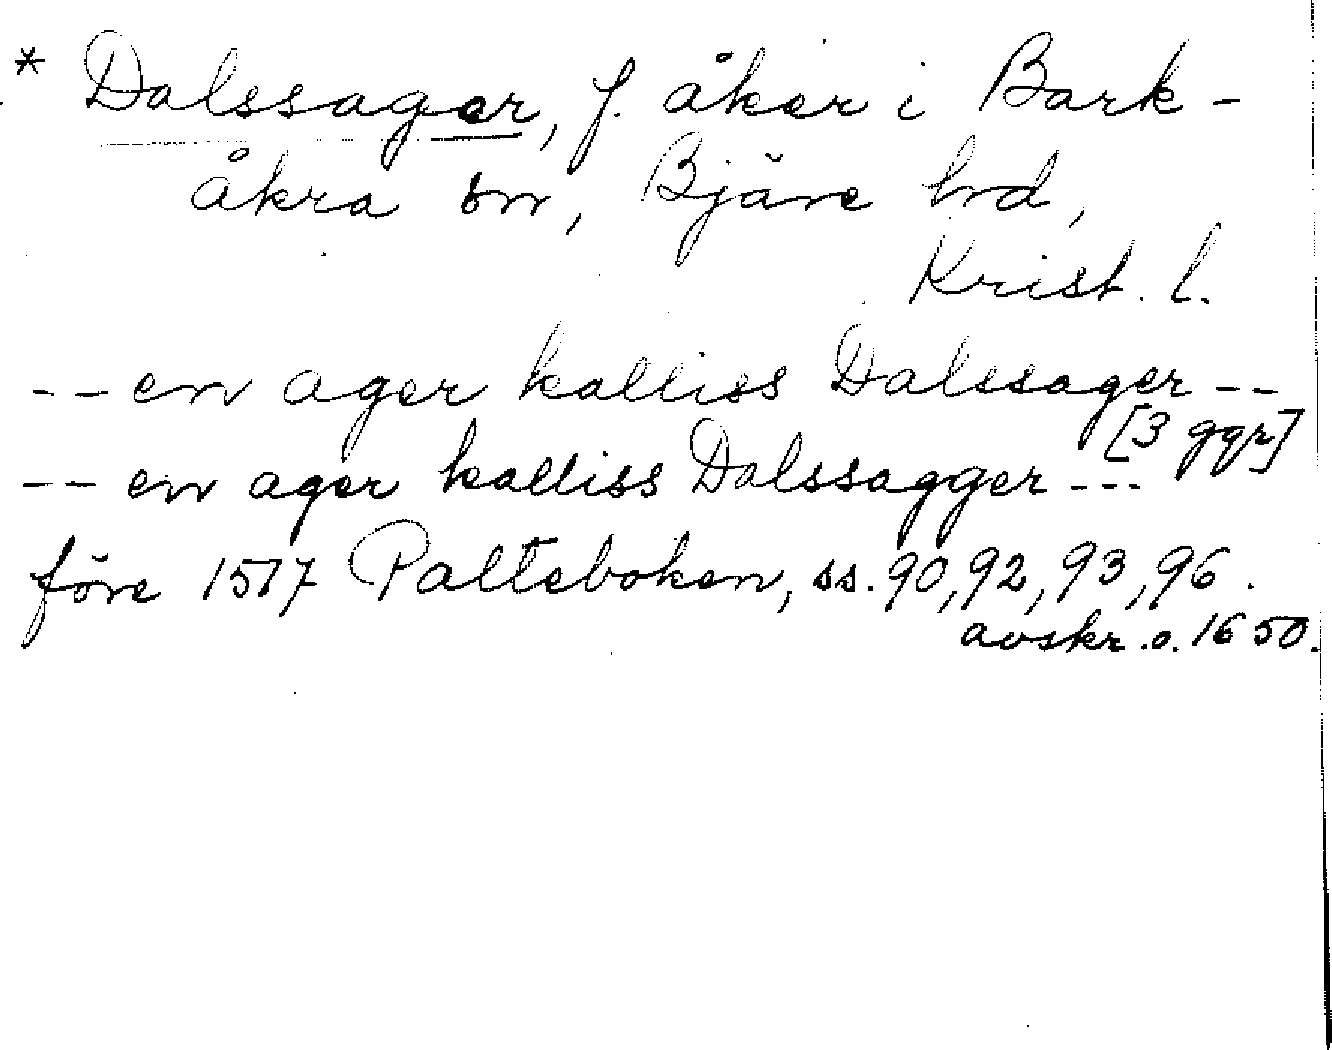 * Dalssager, f. åker i Bark-
åkra sn, Bjäre hrd,
Krist. l.
-- en ager kalliss Dalssager --
[3 ggr]
-- en ager kalliss Dalssagger ---
före 1517 Palteboken, ss. 90, 92, 93, 96.
avskr. o. 1650.